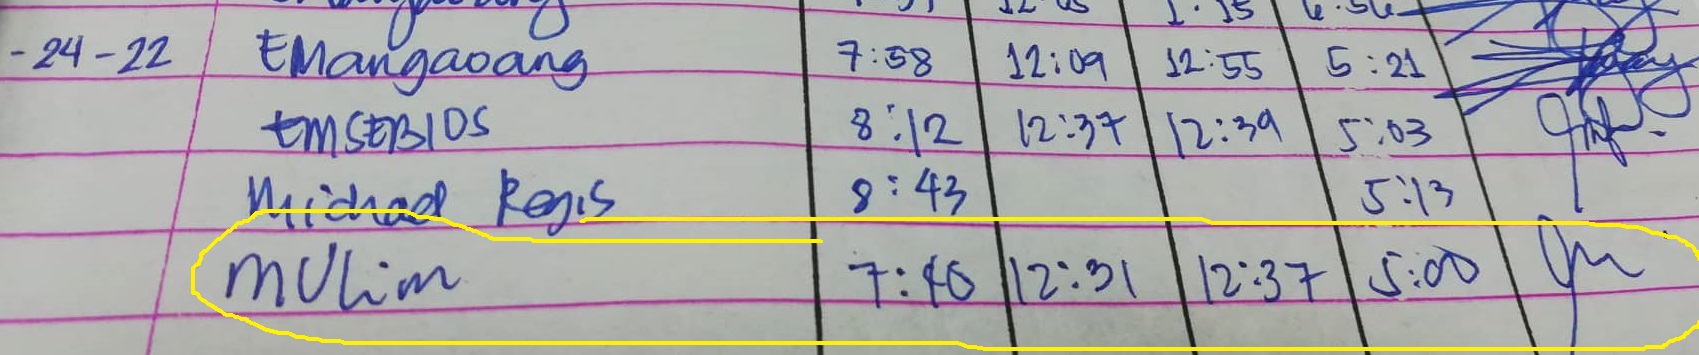 -24-22 EMangaoang 7:58 12:09 12:55 5:21
EMSEBIOS 8:12 12:37 12:39 5:03
Michael Regis 8:43 5:13
MULim 7:40 12:31 12:37 5:00